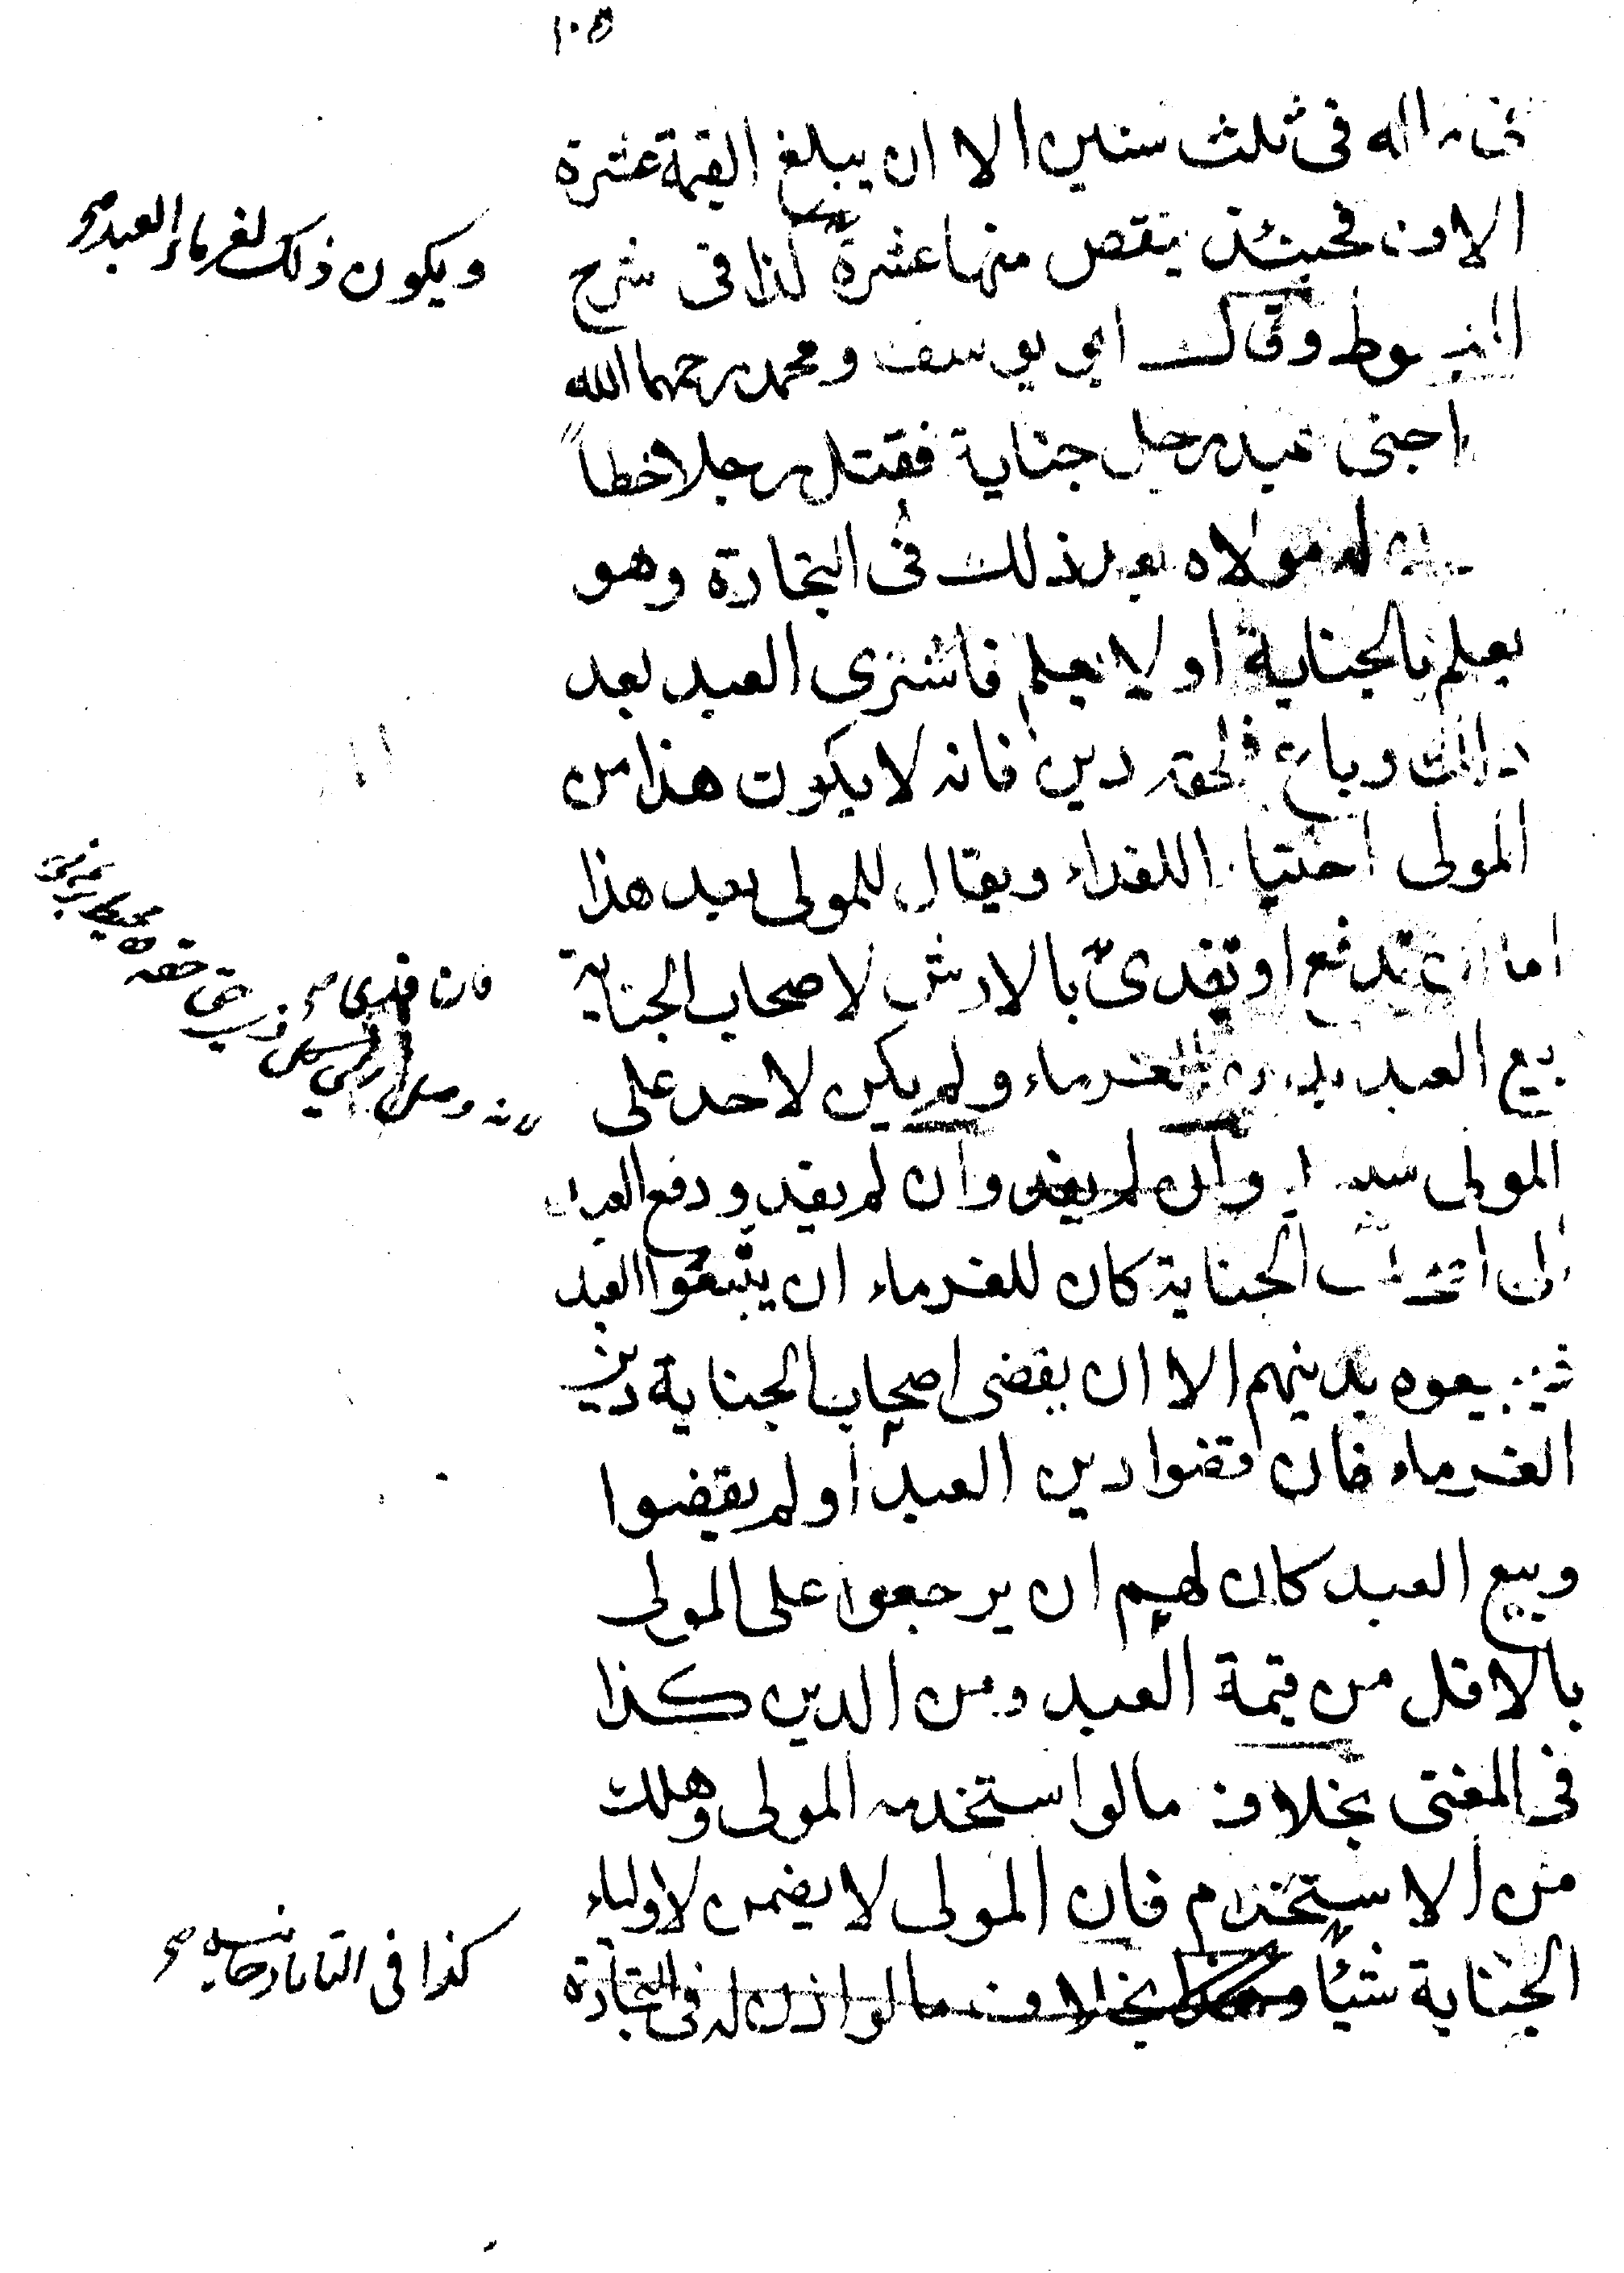 ١٠٥
فى ماله فى ثلث سنين الا ان يبلغ القيمة عشرة
الاف فحينئذ ينقص منها عشرة كذا فى شرح
ويكون ذلك لغرماء العبد صح
المبسوط وقال ابو يوسف ومحمد رحمهما الله
اجنى عبد رجل جناية فقتل رجلا خطأ
له مولاه بعد ذلك فى التجارة وهو
يعلم بالجناية او لا يعلم فاشترى العبد بعد
ذلك وباع فلحقه دين فانه لا يكون هذا من
المولى اختيا اللفداء ويقال للمولى بعد هذا
اما ان تدفع او تفدى بالارش لاصحاب الجناية
فان فدى صح
بيع العبد الغرماء ولم يكن لاحد على
لانه وصل حقه
المولى وان لم يفد وان لم يفد ودفع العبد
الى اصحاب الجناية كان للغرماء ان يتبعوا العبد
فيبيعوه بدينهم الا ان يقضى اصحاب الجناية دين
الغرماء فان قضوا دين العبد او لم يقضوا
وبيع العبد كان لهم ان يرجعوا على المولى
بالاقل من قيمة العبد ومن الدين كذا
فى المغنى بخلاف مالو استخدمه المولى وهلك
من الاستخدام فان المولى لا يضمن لاولياء
الجناية شيئا بخلاف مالو اذن له فى التجارة
كذا فى التاتارخانيه صح